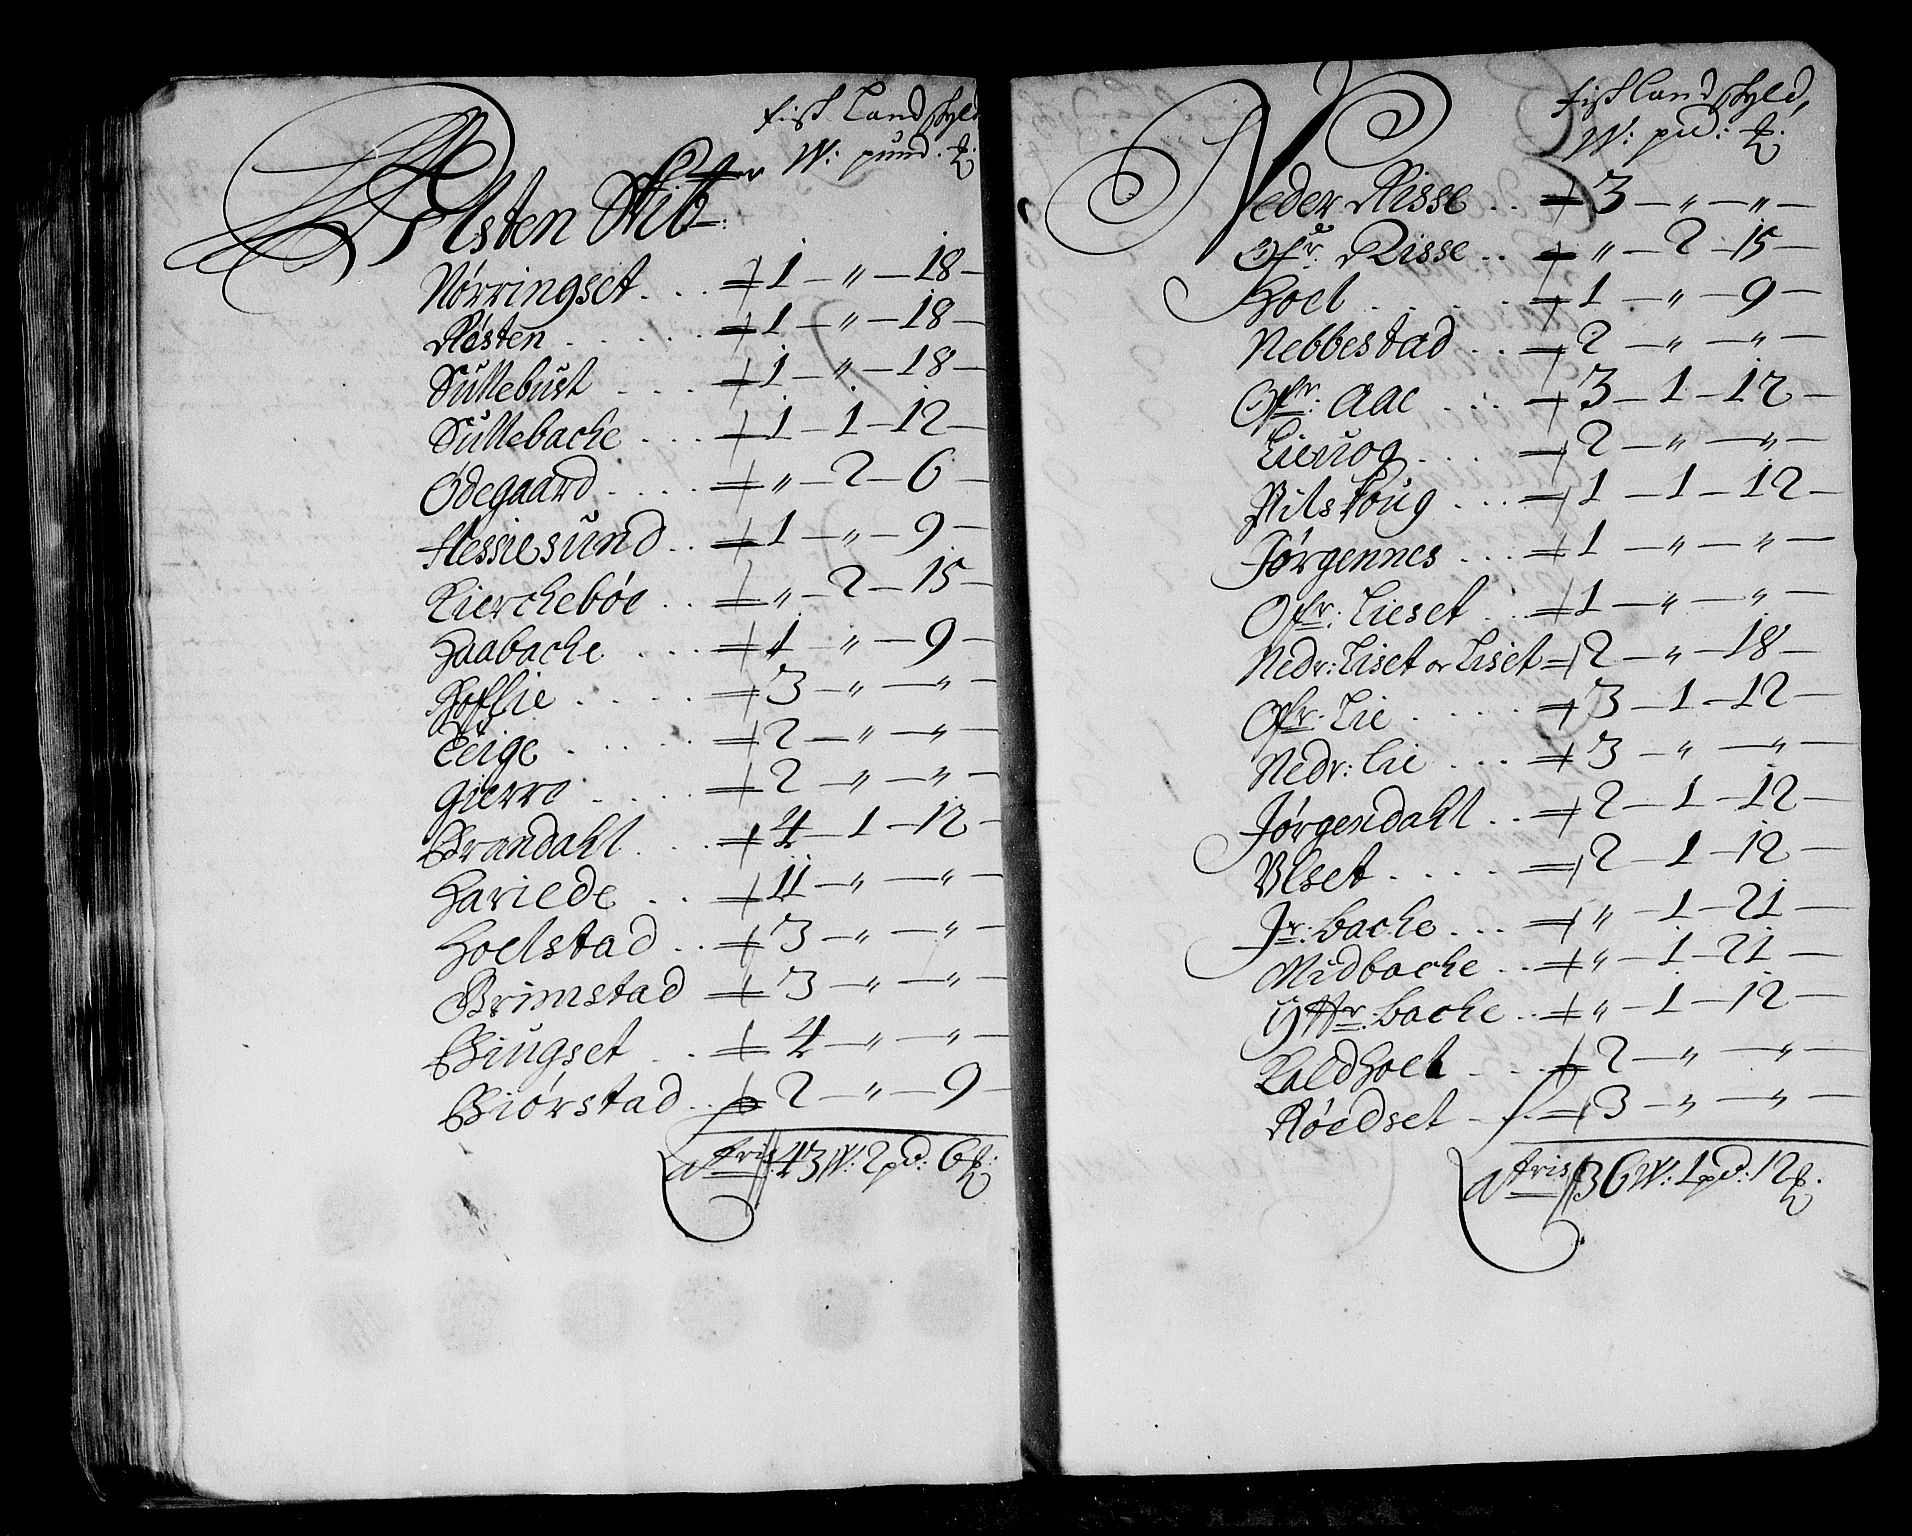 fisk Landskyld
Ulsten Skib: W: pund.
Nørringset . . . 1 — „ — 18 —
Røsten . . . . . 1 — „ — 18 —
Sullebust . . . . 1 — „ — 18 —
Sullebache . . . . 1 — 1 — 12 —
Ødegaard . . . . „ — 2 — 6 —
flessiesund . . 1 — „ — 9 —
Kierchebøe . . „ — 2 — 15 —
Haabache . . . 1 — „ — 9 —
Hoflie . . . . . 3 — „ — „ —
Teige . . . . . 2 — „ — „ —
Gierre . . . . 2 — „ — „ —
Brandahl . . . . 4 — 1 — 12 —
Hariede . . 11 — „ — „ —
Hoelstad . . 3 — „ — „ —
Grimstad 3 — „ — „ —
Biugset . . 4 — „ — „ —
Biørstad . . 2 — „ — 9 —
43 W: 2 pd: 6
fisk Landskyld,
W: pd:
Neder Risse . . 3 — „ — „ —
Ofr: Risse . . „ — 2 — 15 —
Hoel . . . . . 1 — „ — 9 —
Nebbestad . . 2 — „ — „ —
Ofr: Aae . . . 3 — 1 — 12 —
Lieuog . . . . 2 — „ — „ —
Pilskoug . . . 1 — 1 — 12 —
Jørgennes . . . 1 — „ — „ —
Ofr: Lieset . . . 1 — „ — „ —
Nedr: Liset or Liset 2 — „ — 18 —
Ofr. Lie . . . . . 3 — 1 — 12 —
Nedr: Lie . . . . 3 — „ — „ —
Jørgendahl . . 2 — 1 — 12 —
Ulset . . . . . 2 — 1 — 12 —
Jr: bache . . . „ — 1 — 21 —
Midbache . . „ — 1 — 21 —
Yttr: bache . . „ — 1 — 12 —
Kaldhoel . . . 2 — „ — „ —
Røedset . . . 3 — „ — „ —
36 W: 1 pd: 12